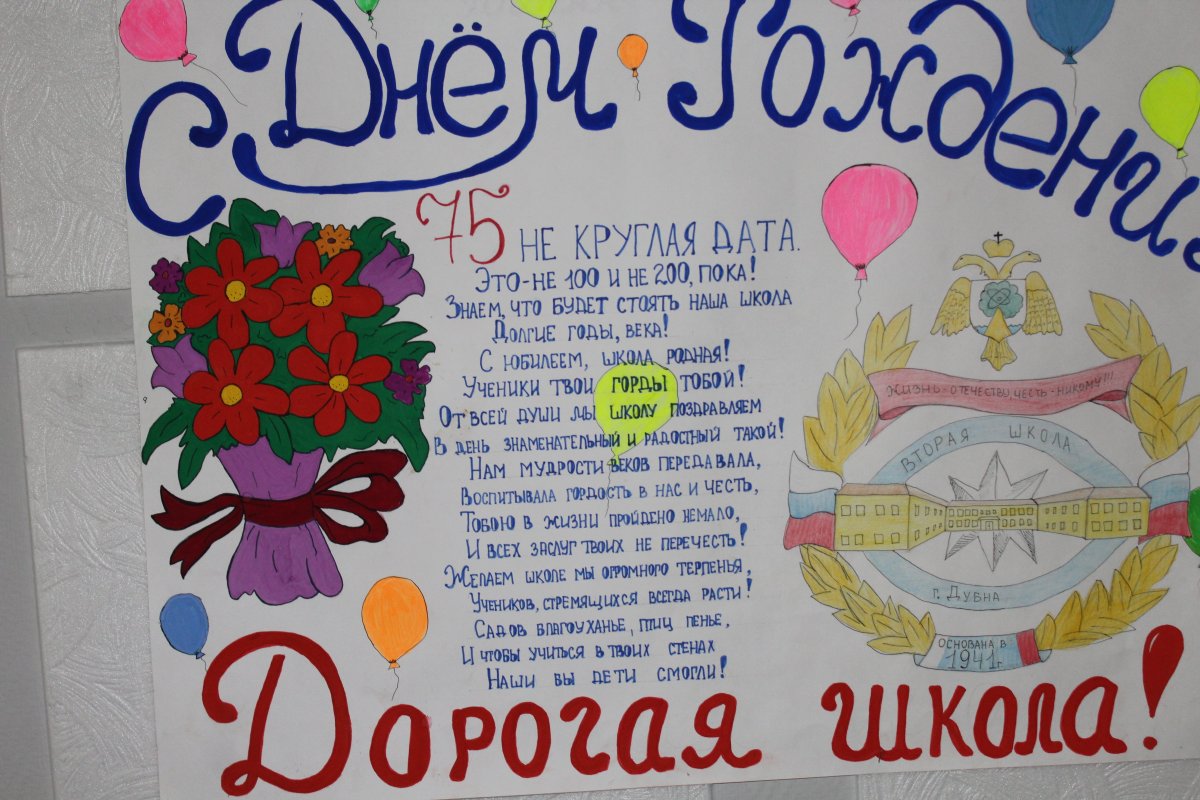 С Днём Рождени
75 НЕ КРУГЛАЯ ДАТА.
ЭТО-НЕ 100 И НЕ 200, ПОКА!
ЗНАЕМ, ЧТО БУДЕТ СТОЯТЬ НАША ШКОЛА
ДОЛГИЕ ГОДЫ, ВЕКА!
С ЮБИЛЕЕМ, ШКОЛА РОДНАЯ!
УЧЕНИКИ ТВОИ ГОРДЫ ТОБОЙ!
ОТ ВСЕЙ ДУШИ МЫ ШКОЛУ ПОЗДРАВЛЯЕМ
В ДЕНЬ ЗНАМЕНАТЕЛЬНЫЙ И РАДОСТНЫЙ ТАКОЙ!
НАМ МУДРОСТИ ВЕКОВ ПЕРЕДАВАЛА,
ВОСПИТЫВАЛА ГОРДОСТЬ В НАС И ЧЕСТЬ,
ТОБОЮ В ЖИЗНИ ПРОЙДЕНО НЕМАЛО,
И ВСЕХ ЗАСЛУГ ТВОИХ НЕ ПЕРЕЧЕСТЬ!
ЖЕЛАЕМ ШКОЛЕ МЫ ОГРОМНОГО ТЕРПЕНЬЯ,
УЧЕНИКОВ, СТРЕМЯЩИХСЯ ВСЕГДА РАСТИ!
САДОВ БЛАГОУХАНЬЕ, ПТИЦ ПЕНЬЕ,
И ЧТОБЫ УЧИТЬСЯ В ТВОИХ СТЕНАХ
НАШИ БЫ ДЕТИ СМОГЛИ!
ЖИЗНЬ-ОТЕЧЕСТВУ, ЧЕСТЬ-НИКОМУ!!!
ВТОРАЯ ШКОЛА
г. ДУБНА
ОСНОВАНА В
1941г.
Дорогая школа!